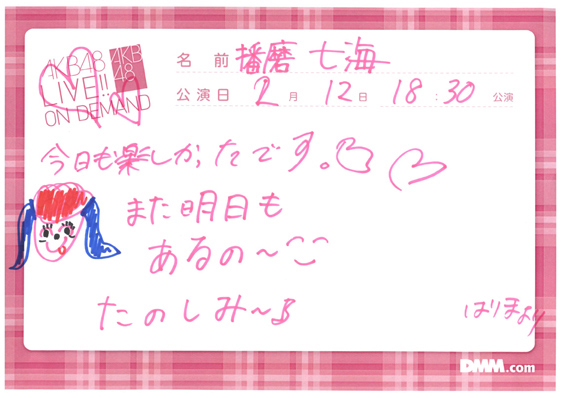 AKB48
LIVE!!
ON DEMAND
AKB
48
名前 播磨 七海
公演日 2月 12日 18:30 公演
今日も楽しかったです。
また明日も
あるの〜
たのしみ〜♪
はりまより
DMM.com